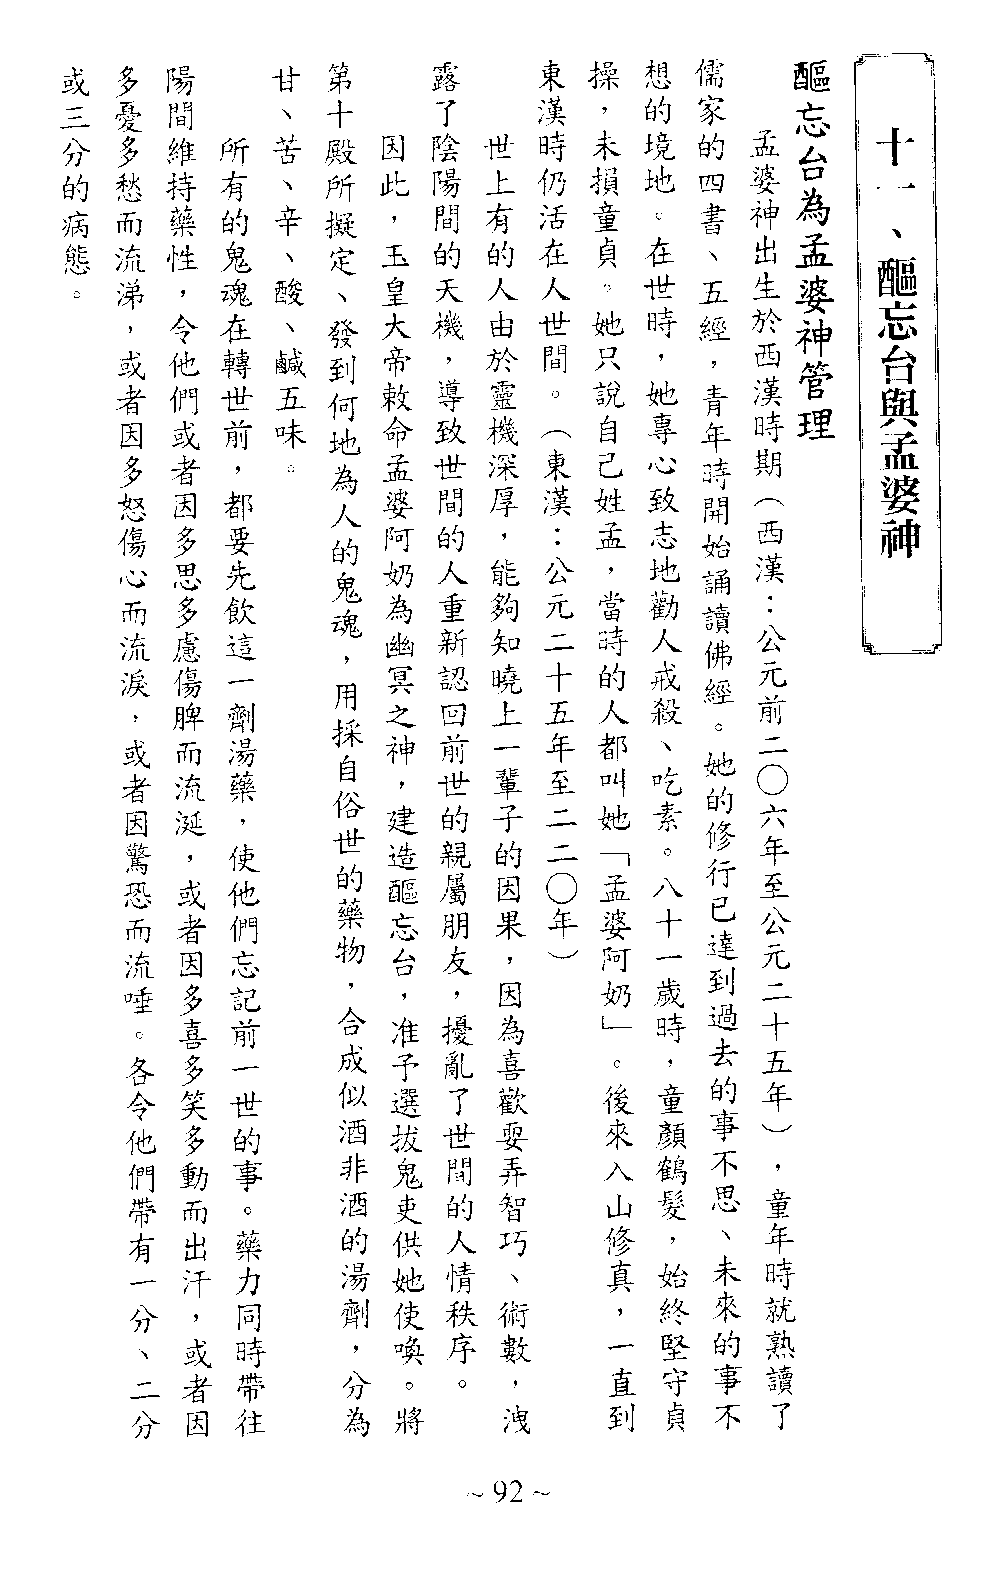 十一、醧忘台與孟婆神
醧忘台為孟婆神管理
孟婆神出生於西漢時期（西漢：公元前二〇六年至公元二十五年），童年時就熟讀了
儒家的四書、五經，青年時開始誦讀佛經。她的修行已達到過去的事不思、未來的事不
想的境地。在世時，她專心致志地勸人戒殺、吃素。八十一歲時，童顏鶴髮，始終堅守貞
操，未損童貞。她只說自己姓孟，當時的人都叫她「孟婆阿奶」。後來入山修真，一直到
東漢時仍活在人世間。（東漢：公元二十五年至二二〇年）
世上有的人由於靈機深厚，能夠知曉上一輩子的因果，因為喜歡耍弄智巧、術數，洩
露了陰陽間的天機，導致世間的人重新認回前世的親屬朋友，擾亂了世間的人情秩序。
因此，玉皇大帝敕命孟婆阿奶為幽冥之神，建造醧忘台，准予選拔鬼吏供她使喚。將
第十殿所擬定、發到何地為人的鬼魂，用採自俗世的藥物，合成似酒非酒的湯劑，分為
甘、苦、辛、酸、鹹五味。
所有的鬼魂在轉世前，都要先飲這一劑湯藥，使他們忘記前一世的事。藥力同時帶往
陽間維持藥性，令他們或者因多思多慮傷脾而流涎，或者因多喜多笑多動而出汗，或者因
多憂多愁而流涕，或者因多怒傷心而流淚，或者因驚恐而流唾。各令他們帶有一分、二分
或三分的病態。
~ 92 ~